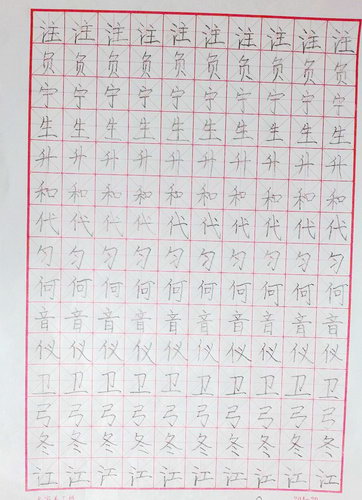 注注注注注注注注注注
负负负负负负负负负负
宁宁宁宁宁宁宁宁宁宁
生生生生生生生生生生
升升升升升升升升升升
和和和和和和和和和和
代代代代代代代代代代
匀匀匀匀匀匀匀匀匀匀
何何何何何何何何何何
音音音音音音音音音音
仪仪仪仪仪仪仪仪仪仪
卫卫卫卫卫卫卫卫卫卫
弓弓弓弓弓弓弓弓弓弓
冬冬冬冬冬冬冬冬冬冬
江江江江江江江江江江